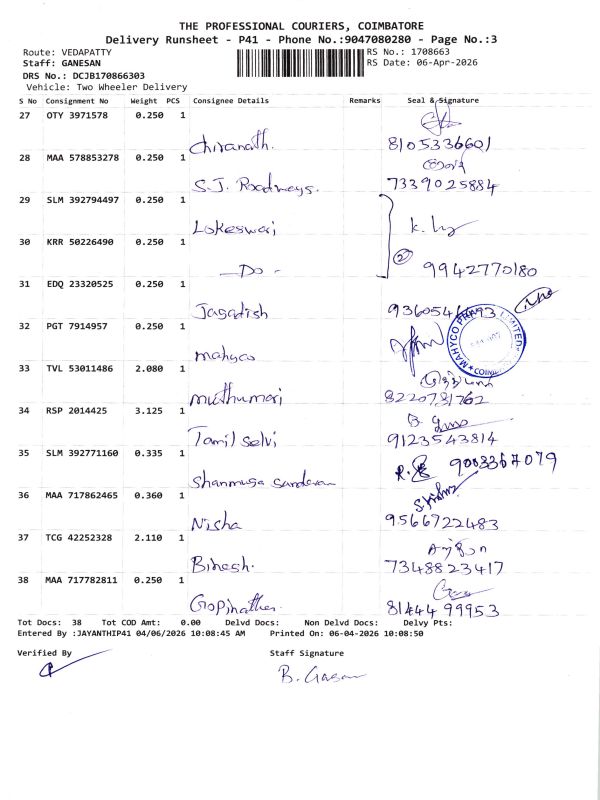 THE PROFESSIONAL COURIERS, COIMBATORE
Delivery Runsheet - P41 - Phone No.:9047080280 - Page No.:3
Route: VEDAPATTY RS No.: 1708663
Staff: GANESAN RS Date: 06-Apr-2026
DRS No.: DCJB170866303
Vehicle: Two Wheeler Delivery
S No Consignment No Weight PCS Consignee Details Remarks Seal & Signature
27 OTY 3971578 0.250 1
Chiranath. 8105336601
28 MAA 578853278 0.250 1
S.J. Roadways. 7339025884
29 SLM 392794497 0.250 1
Lokeswari
30 KRR 50226490 0.250 1
- Do - 2 9942770180
31 EDQ 23320525 0.250 1
Jagadish
32 PGT 7914957 0.250 1
Mahyco
33 TVL 53011486 2.080 1
Muthumari
34 RSP 2014425 3.125 1
Tamil Selvi 9123543814
35 SLM 392771160 0.335 1
Shanmuga Sundaram 9003367079
36 MAA 717862465 0.360 1
Nisha 9566722483
37 TCG 42252328 2.110 1
Binesh. 7348823417
38 MAA 717782811 0.250 1
Gopinathan. 81444 99953
Tot Docs: 38 Tot COD Amt: 0.00 Delvd Docs: Non Delvd Docs: Delvy Pts:
Entered By :JAYANTHIP41 04/06/2026 10:08:45 AM Printed On: 06-04-2026 10:08:50
Verified By Staff Signature